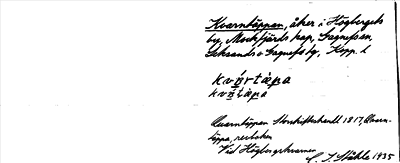 Kvarntäppan, åker i Högbergets
by, Mockfjärds kap, Gagnefs sn,
Leksands o Gagnefs tg, Kopp. l.
kvɑ̀rtɑ̀pa
kvɑ̀tɑ̀pa
Qvarntäppan Storskifteshandl 1817, Qvarn-
täppa, renboken
Vid Högbergskvarnen
1935